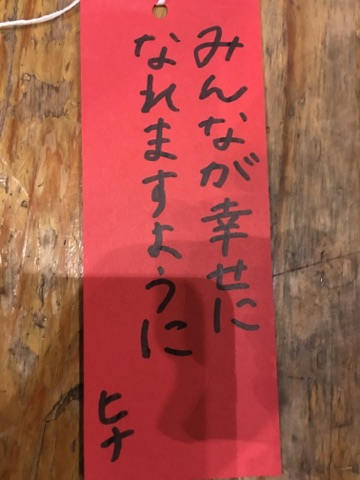 みんなが幸せに
なれますように
ヒナ